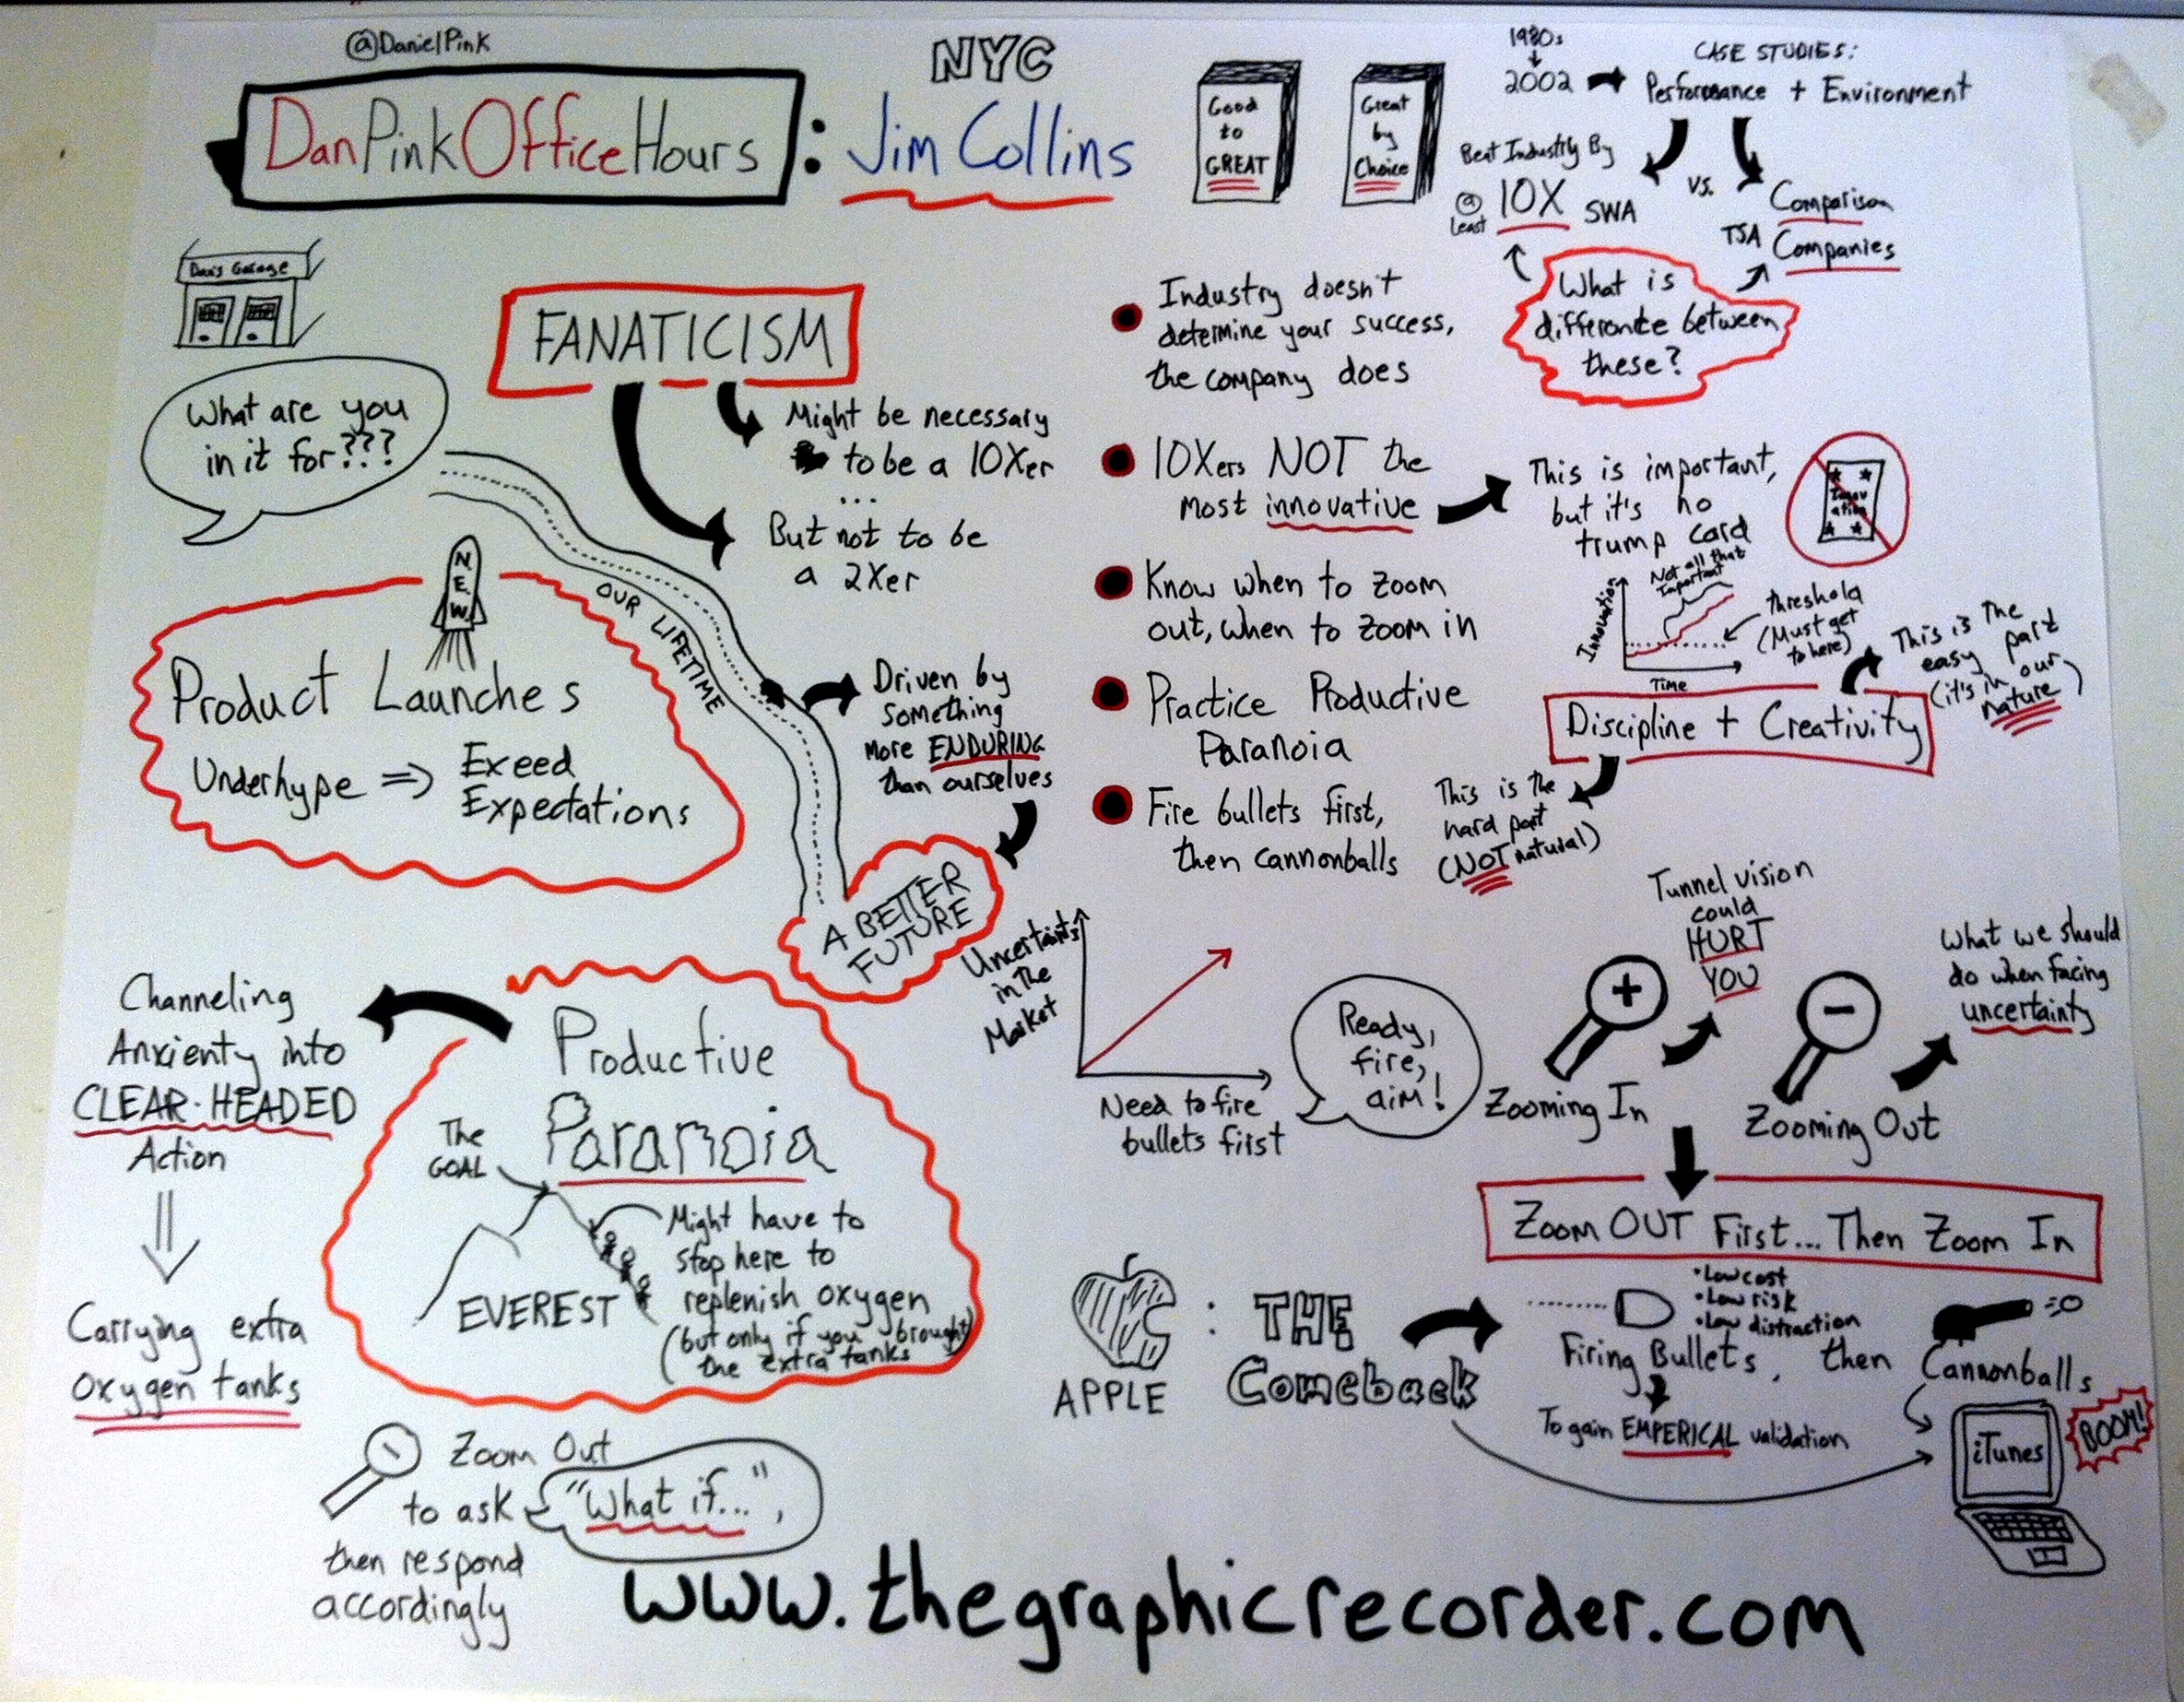 @DanielPink
DanPinkOfficeHours :
NYC
Jim Collins
Good
to
GREAT
Great
by
Choice
1980s
2002
CASE STUDIES:
Performance + Environment
Beat Industry By
@
least
10X SWA
vs.
Comparison
TSA Companies
What is
differente between
these?
Dan's Garage
What are you
in it for???
FANATICISM
Might be necessary
to be a 10Xer
...
But not to be
a 2Xer
OUR LIFETIME
Driven by
something
more ENDURING
than ourselves
A BETTER
FUTURE
N.
E.
W.
Product Launches
Underhype ⇒ Exeed
Expectations
Industry doesn't
determine your success,
the company does
10Xers NOT the
most innovative
This is important,
but it's no
trump card
Innov
ation
Know when to zoom
out, when to zoom in
Practice Productive
Paranoia
Fire bullets first,
then cannonballs
Innovation
Time
Not all that
Important
threshold
(Must get
to here)
Discipline + Creativity
This is the
easy part
(it's in our
nature)
This is the
hard part
(NOT natural)
Uncertainty
in the
Market
Need to fire
bullets first
Ready,
fire,
aim!
Tunnel vision
could
HURT
YOU
+
Zooming In
-
Zooming Out
What we should
do when facing
uncertainty
Zoom OUT First... Then Zoom In
Channeling
Anxienty into
CLEAR-HEADED
Action
Carrying extra
oxygen tanks
Productive
Paranoia
The
GOAL
EVEREST
Might have to
stop here to
replenish oxygen
(but only if you brought)
the extra tanks
Zoom Out
to ask "What if...",
then respond
accordingly
APPLE
: THE
Comeback
• Low cost
• Low risk
• Low distraction
Firing Bullets, then Cannonballs
To gain EMPERICAL validation
iTunes
BOOM!
www.thegraphicrecorder.com